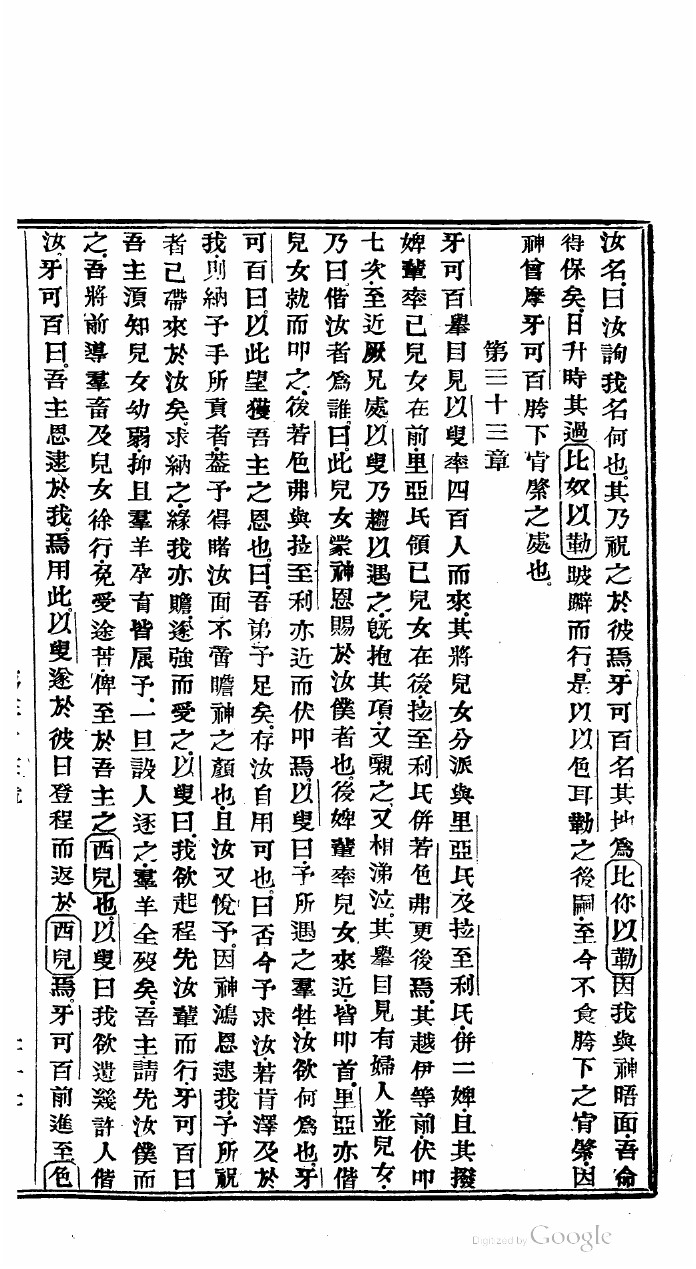 汝名.曰汝詢我名何也.其乃祝之於彼焉.牙可百名其地爲比你以勒因我與神晤面.吾命
得保矣.日升時其過比奴以勒跛躃而行.是以以色耳勒之後嗣.至今不食胯下之肯綮.因
神曾摩牙可百胯下肯綮之處也.
第三十三章
牙可百舉目見以叟率四百人而來.其將兒女分派與里亞氏及拉至利氏.併二婢.且其撥
婢輩率己兒女在前.里亞氏領己兒女在後拉至利氏併若色弗更後焉.其越伊等前.伏叩
七次.至近厥兄處.以叟乃趨以遇之.旣抱其項.又嚫之.又相涕泣.其舉目見有婦人並兒女.
乃曰偕汝者爲誰.曰.此兒女蒙神恩賜於汝僕者也.後婢輩率兒女來近.皆叩首.里亞亦偕
兒女就而叩之.後若色弗與拉至利亦近而伏叩焉.以叟曰.予所遇之羣牲.汝欲何爲也.牙
可百曰.以此望獲吾主之恩也.曰.吾弟予足矣.存汝自用可也.曰否今予求汝.若肯澤及於
我.則納予手所貢者.蓋予得睹汝面不啻瞻神之顏也.且汝又悅予.因神鴻恩逮我.予所祝
者已帶來於汝矣.求納之.緣我亦贍.遂強而受之.以叟曰.我欲起程先汝輩而行.牙可百曰
吾主須知兒女幼弱.抑且羣羊孕育皆屬予.一旦設人逐之.羣羊全殁矣.吾主請先汝僕而
之.吾將前導羣畜及兒女徐行.免受途苦.俾至於吾主之西兒也.以叟曰我欲遺幾許人偕
汝.牙可百曰.吾主恩逮於我.焉用此.以叟遂於彼日登程而返於西兒焉.牙可百前進至色
Digitized by Google